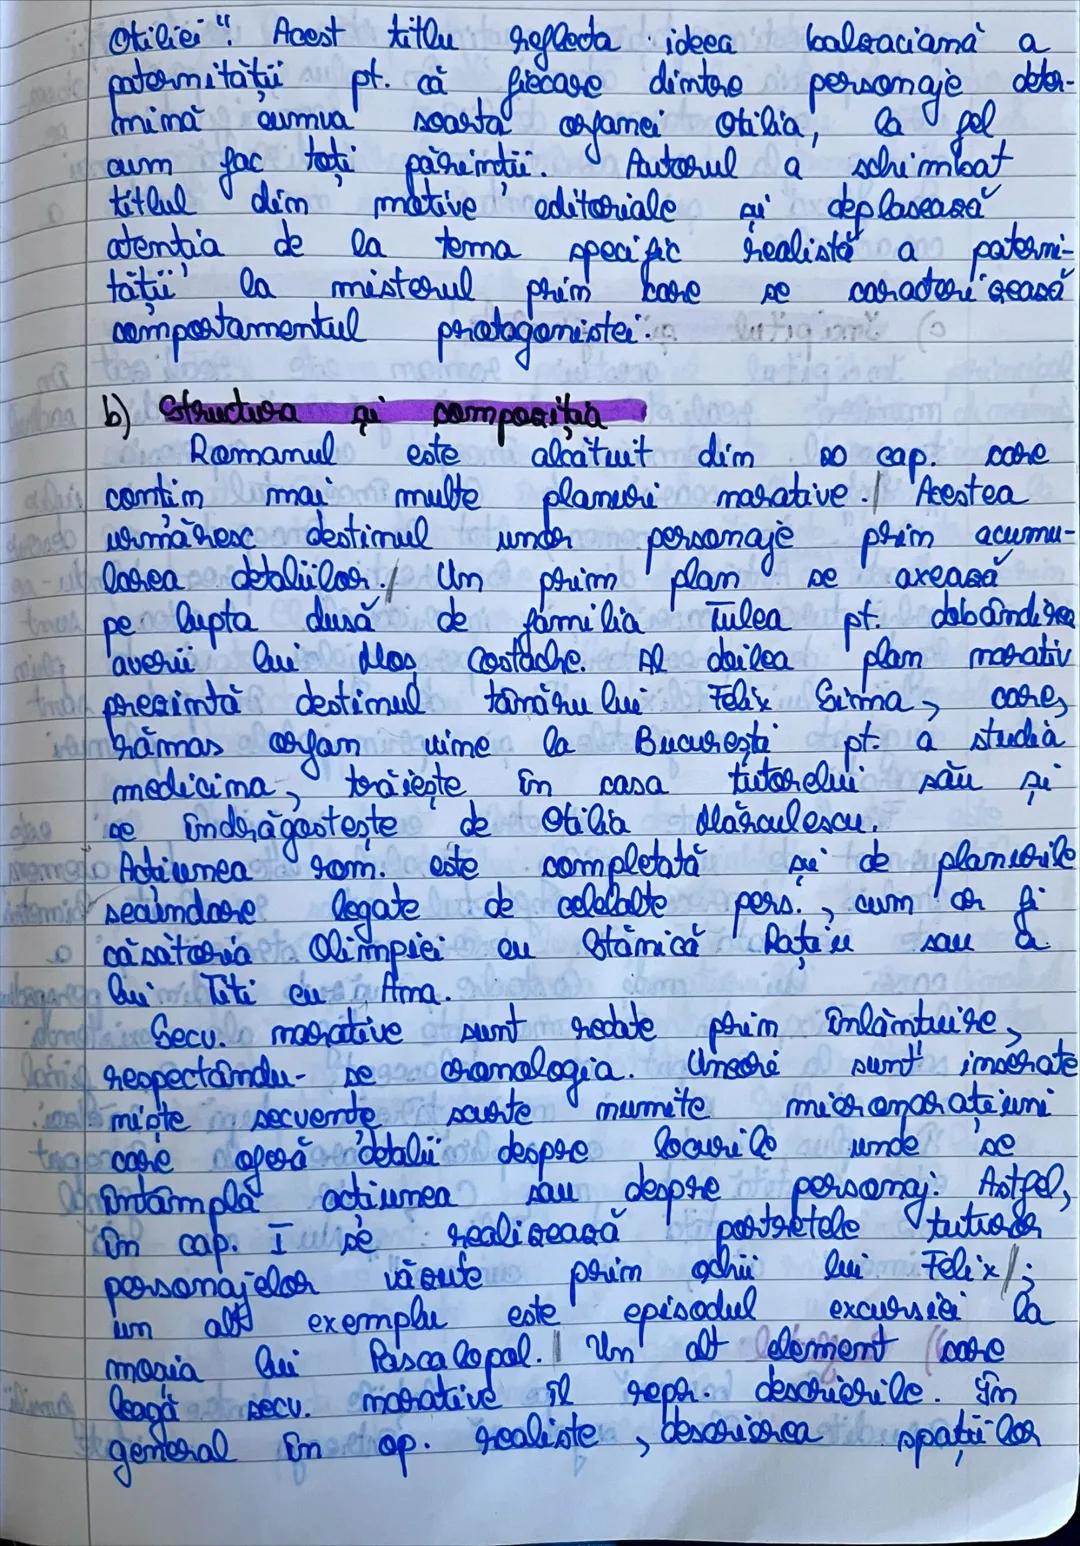 Otiliei". Acest titlu reflecta ideea balzaciană a
paternității pt. că fiecare dintre personaje deter-
mină cumva soarta orfanei Otilia, la fel
cum fac toți părinții. Autorul a schimbat
titlul din motive editoriale și deplasează
atenția de la tema specific realistă a paterni-
tății la misterul prin care se caracterizează
comportamentul protagonistei.
b) Structura și compoziția
Romanul este alcătuit din 20 cap. care
contin mai multe planuri narative. Acestea
urmăresc destinul unor personaje prin acumu-
larea detaliilor. Un prim plan se axează
pe lupta dusă de familia Tulea pt. dobândirea
averii lui Moș Costache. Al doilea plan narativ
prezintă destinul tânărului Felix Sima, care,
rămas orfan vine la București pt. a studia
medicina, trăiește în casa tutorelui său și
se îndrăgostește de Otilia Mărculescu.
Acțiunea rom. este completată și de planurile
secundare legate de celelalte pers., cum ar fi
căsătoria Olimpiei cu Stănică Rațiu sau a
lui Titi cu Ana.
Secv. narative sunt redate prin înlănțuire,
respectându-se cronologia. Uneori sunt inserate
niște secvențe scurte numite micronarațiuni
care oferă detalii despre locurile unde se
întâmplă acțiunea sau despre personaj. Astfel,
în cap. I se realizează portretele tuturor
personajelor văzute prin ochii lui Felix;
un alt exemplu este episodul excursiei la
moșia lui Pascalopol. Un alt element care
leagă secv. narative îl repr. descrierile. În
general în op. realiste, descrierea spațiilor